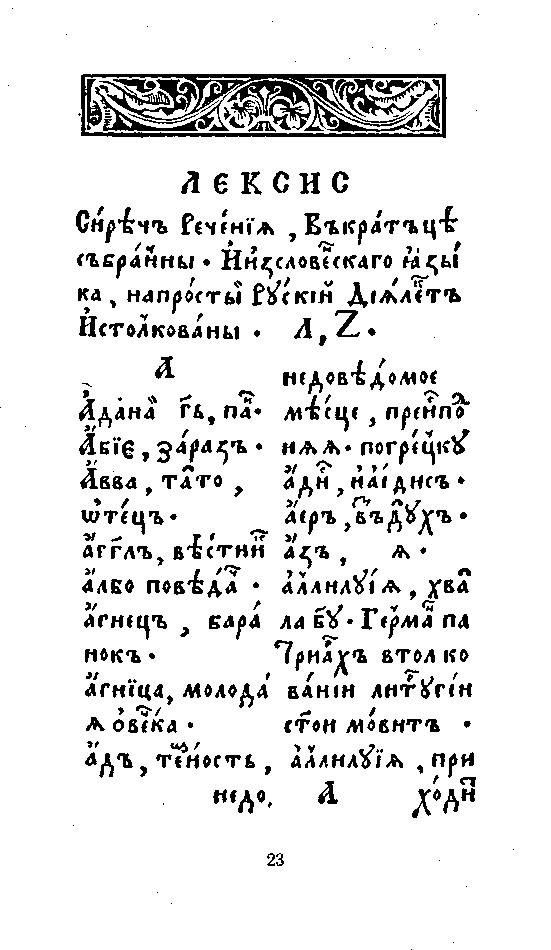 ЛЕКСИС
Си́рѣчъ Рече́нїѧ, Въкра́тъцѣ
събра́нны. И҆изслове́нскаго ѩ҆зы́
ка, напросты́й Ру́скїй Дїѧ́лектъ
И҆столкова́ны. Л, Z.
А
А҆дана́й гь, па҃.
А҆́бїє, за́разъ.
А҆́вва, та́то,
ѡ҆те́цъ.
а҆́гг҃лъ, вѣ́стник
а҆́лбо повѣда́ч.
а҆́гнецъ, бара́
нокъ.
а҆́гница, молода́
ѧ ѻ҆ве́чка.
а҆́дъ, те́мность,
недовѣ́домое
мѣ́сце, преиспо́д
нѧѧ. погре́цку
а҆́дис, наідись.
а҆́еръ, въздухъ.
а҆́зъ, ѧ.
а҆ллилу́їѧ, хвал
ла бу. Ге́рман па
трїа́рхъ втолко
ва́нїи литургїи
с҃той мо́витъ.
а҆ллилу́їѧ, при
недо,
А
хо́дит
23